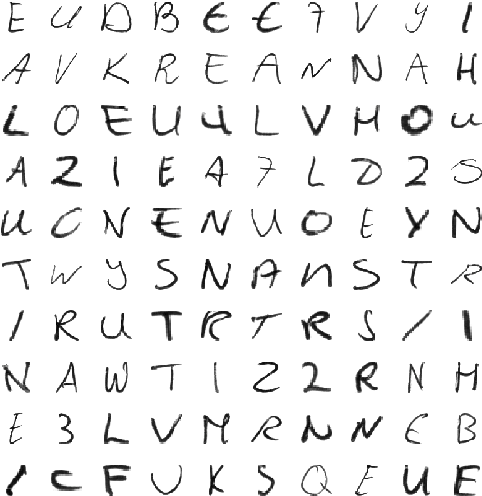 E U D B E E 7 V Y 1
A V K R E A N N A H
L O E U 4 L V H O U
A 2 1 E A 7 L D 2 S
U C N E N U O E Y N
T W Y S N A N S T R
1 R U T R T R S 1 1
N A W T 1 2 2 R N M
E 3 L V M R N N E B
1 C F U K S Q E U E